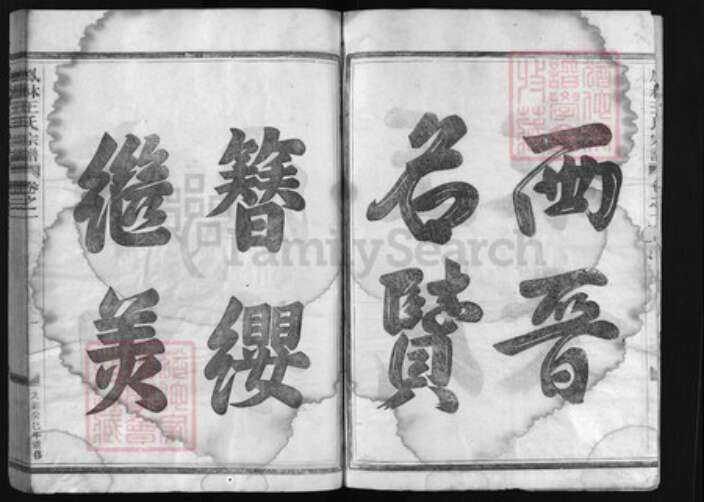 西晋
名賢
簪纓
繼美
鳳林王氏宗譜 卷之一
FamilySearch